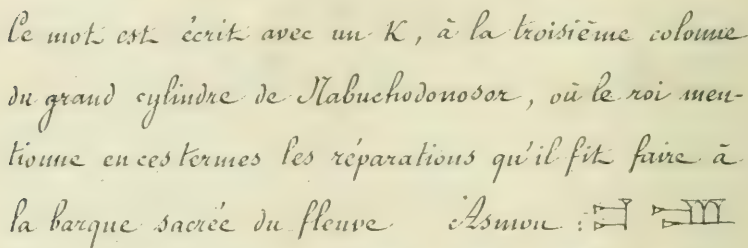 Ce mot est écrit avec un K, à la troisième colonne
du grand cylindre de Nabuchodonosor, où le roi men-
tionne en ces termes les réparations qu'il fit faire à
la barque sacrée du fleuve Asmou :